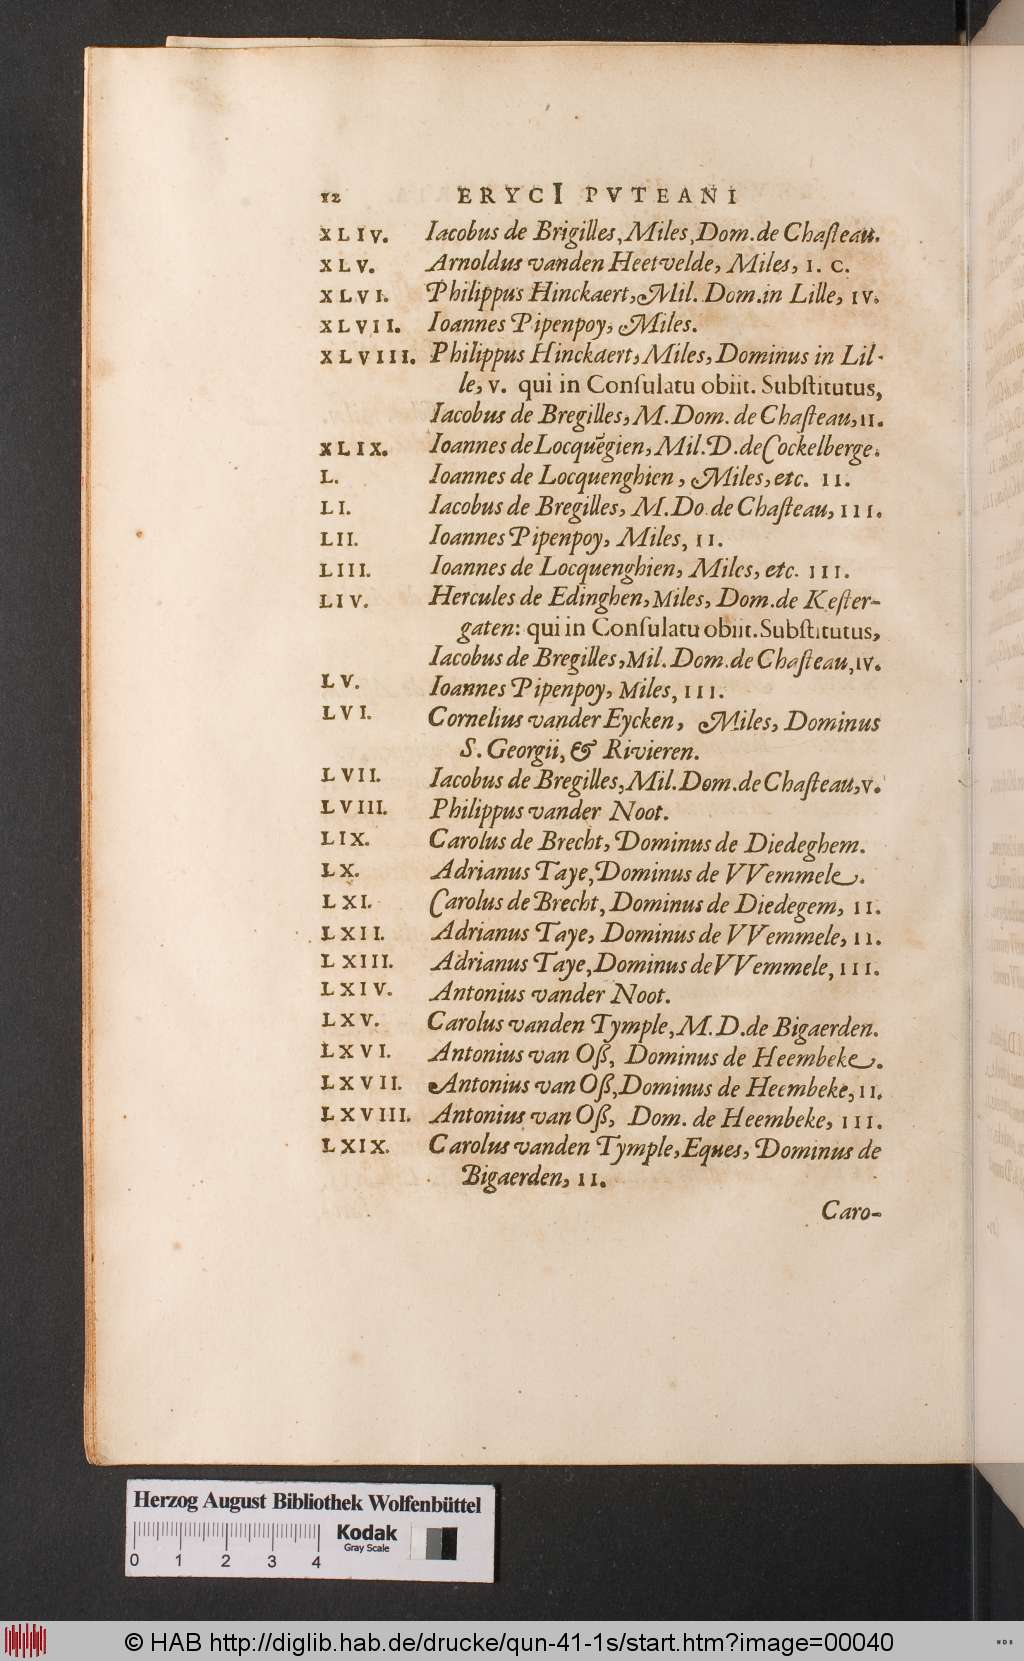 12 ERYCI PVTEANI
XLIV. Iacobus de Brigilles, Miles, Dom. de Chaſteau.
XLV. Arnoldus vanden Heetvelde, Miles, I. C.
XLVI. Philippus Hinckaert, Mil. Dom. in Lille, IV.
XLVII. Ioannes Pipenpoy, Miles.
XLVIII. Philippus Hinckaert, Miles, Dominus in Lil-
le, V. qui in Conſulatu obiit. Subſtitutus,
Iacobus de Bregilles, M. Dom. de Chaſteau, II.
XLIX. Ioannes de Locquēgien, Mil. D. de Cockelberge.
L. Ioannes de Locquenghien, Miles, etc. II.
LI. Iacobus de Bregilles, M. Do. de Chaſteau, III.
LII. Ioannes Pipenpoy, Miles, II.
LIII. Ioannes de Locquenghien, Miles, etc. III.
LIV. Hercules de Edinghen, Miles, Dom. de Keſter-
gaten: qui in Conſulatu obiit. Subſtitutus,
Iacobus de Bregilles, Mil. Dom. de Chaſteau, IV.
LV. Ioannes Pipenpoy, Miles, III.
LVI. Cornelius vander Eycken, Miles, Dominus
S. Georgii, & Rivieren.
LVII. Iacobus de Bregilles, Mil. Dom. de Chaſteau, V.
LVIII. Philippus vander Noot.
LIX. Carolus de Brecht, Dominus de Diedeghem.
LX. Adrianus Taye, Dominus de VVemmele.
LXI. Carolus de Brecht, Dominus de Diedegem, II.
LXII. Adrianus Taye, Dominus de VVemmele, II.
LXIII. Adrianus Taye, Dominus de VVemmele, III.
LXIV. Antonius vander Noot.
LXV. Carolus vanden Tymple, M. D. de Bigaerden.
LXVI. Antonius van Oß, Dominus de Heembeke.
LXVII. Antonius van Oß, Dominus de Heembeke, II.
LXVIII. Antonius van Oß, Dom. de Heembeke, III.
LXIX. Carolus vanden Tymple, Eques, Dominus de
Bigaerden, II.
Caro-
Herzog August Bibliothek Wolfenbüttel
Kodak
Gray Scale
0 1 2 3 4
© HAB http://diglib.hab.de/drucke/qun-41-1s/start.htm?image=00040